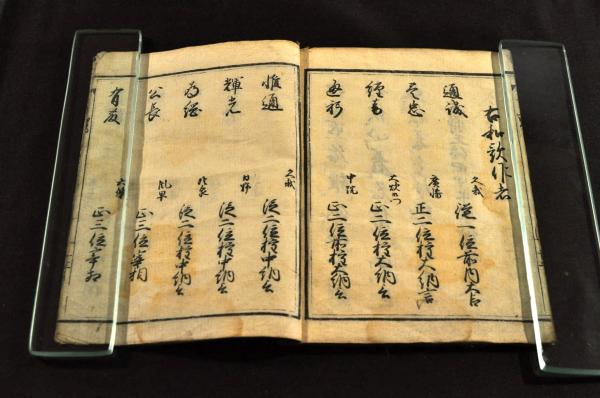 右和歌作者
通誠 久我 従一位前内大臣
廣幡 正二位権大納言
経音 大炊御門 正二位権大納言
中院 正二位前権大納言
惟通 久我 従二位権中納言
輝光 日野 従二位権中納言
為綱 冷泉 従二位権中納言
公長 風早 正三位宰相
有慶 六條 正三位